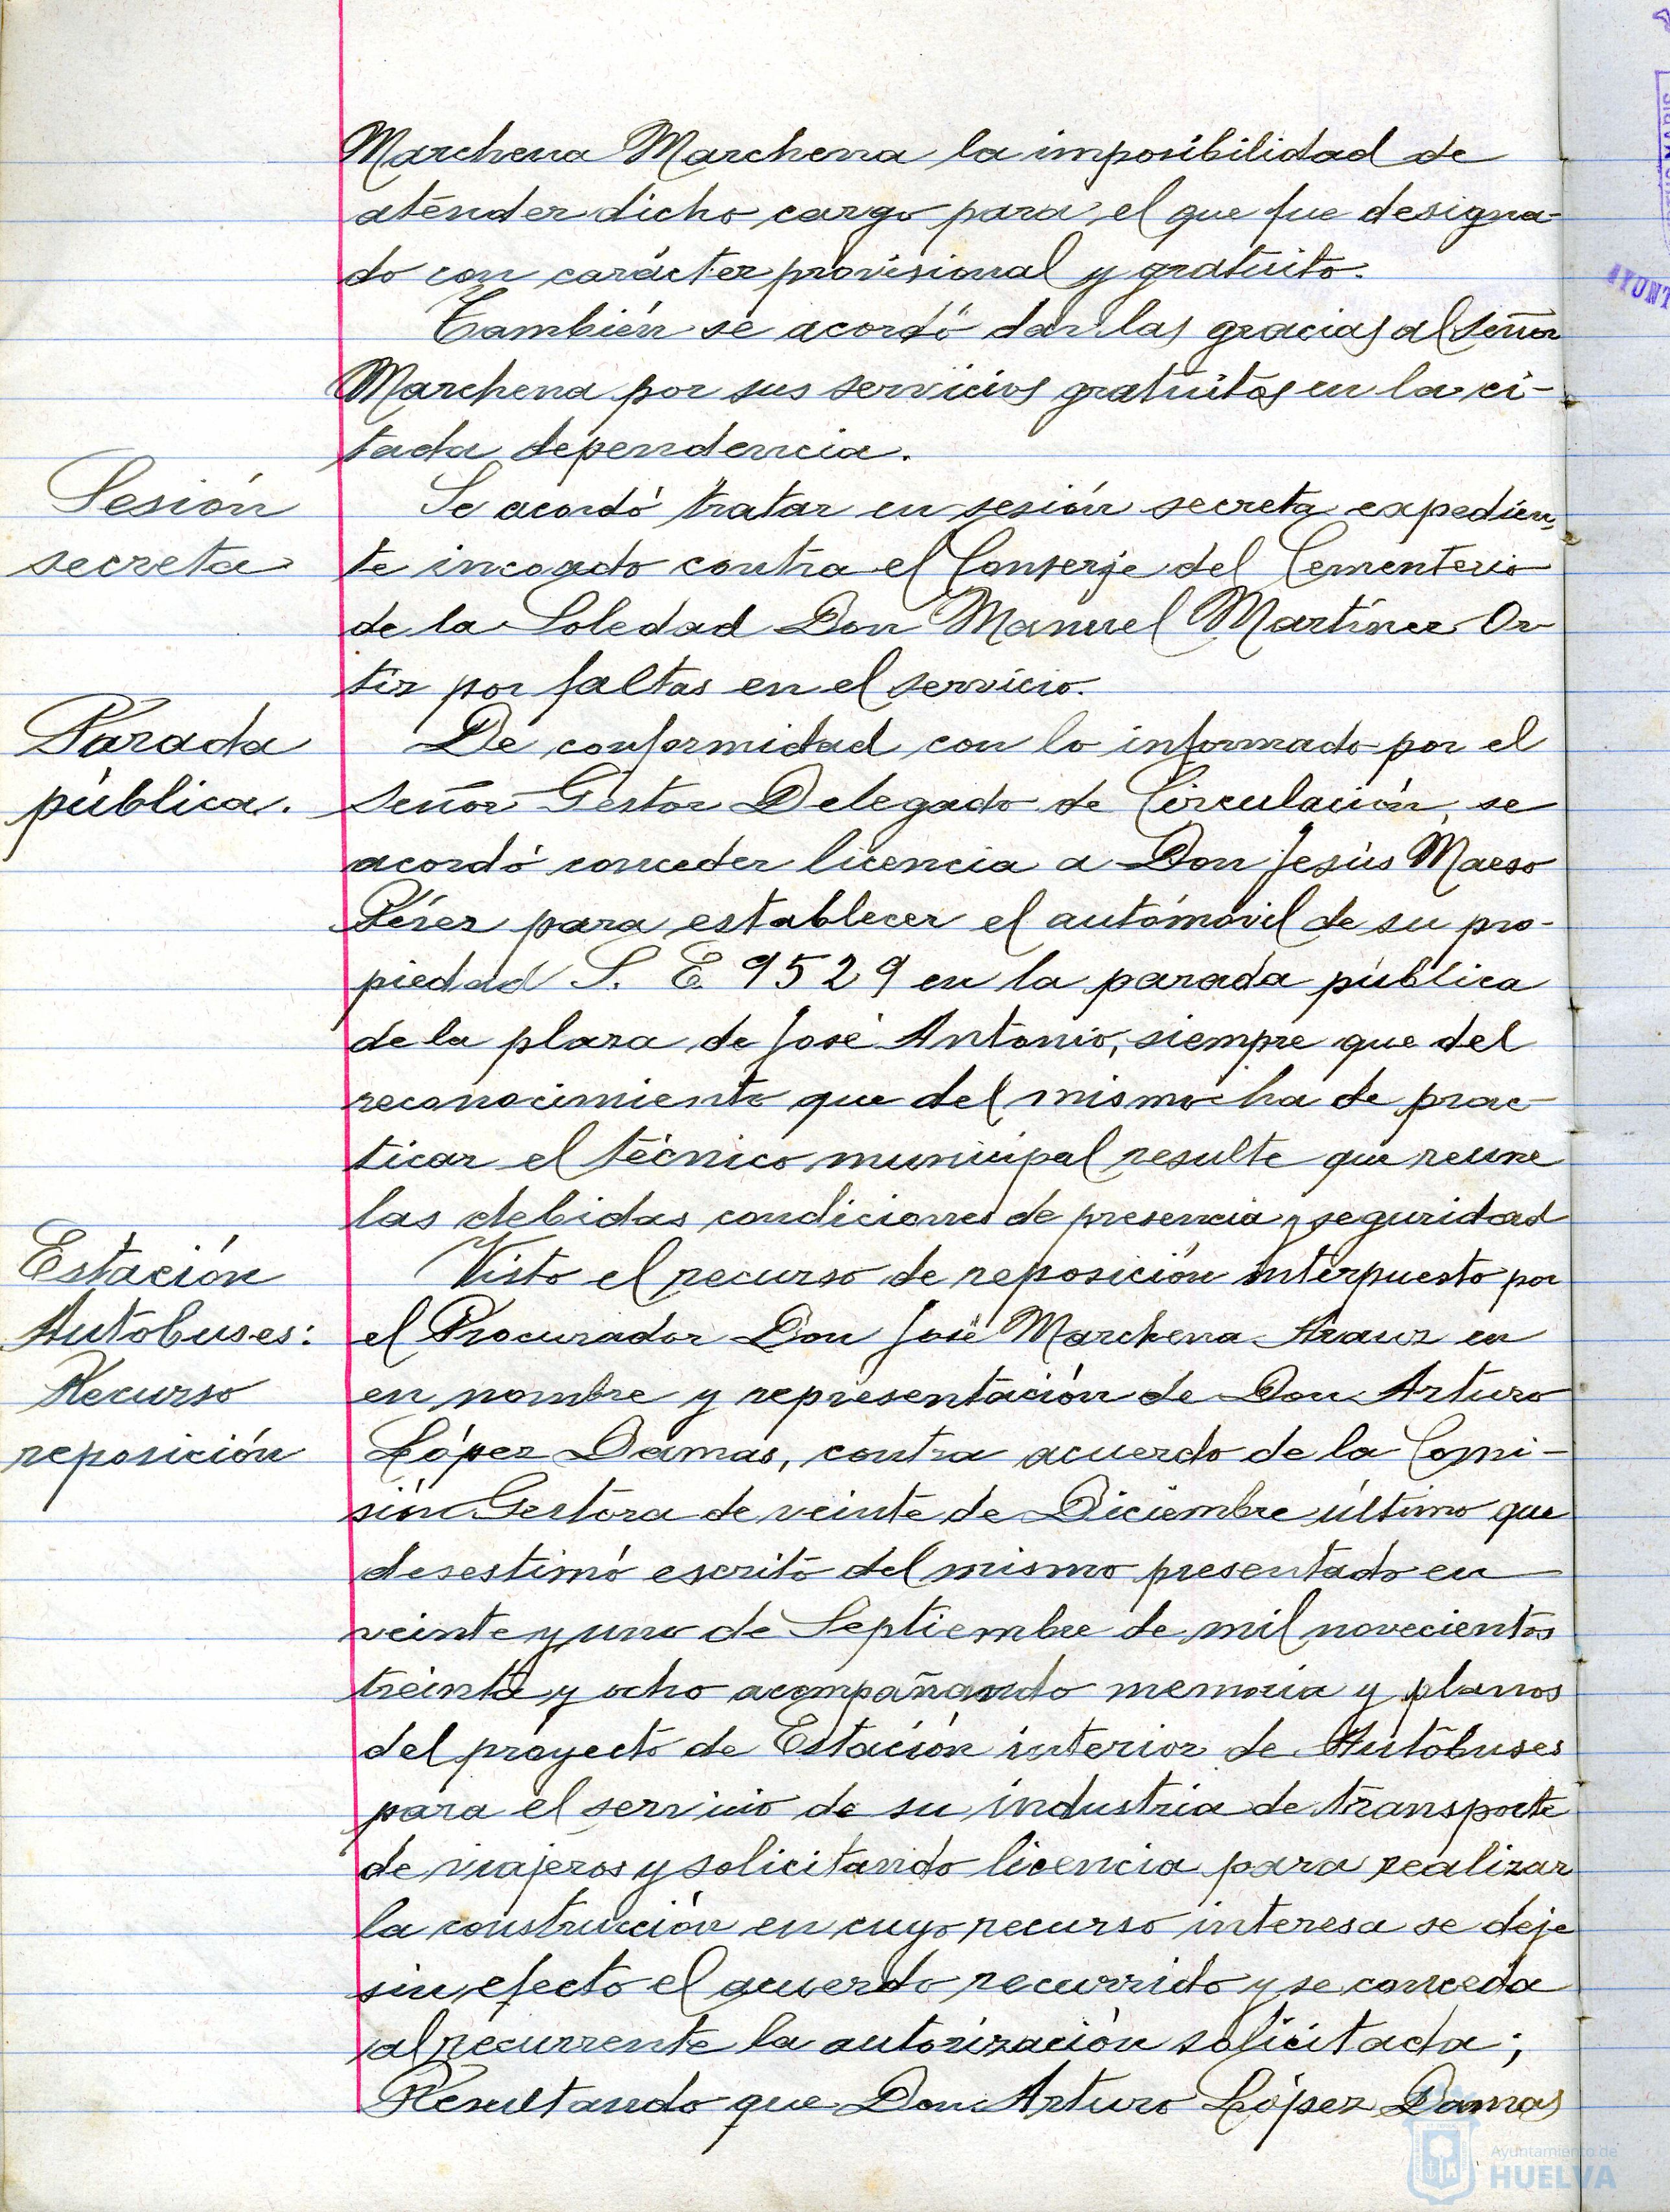 Marchena Marchena la imposibilidad de
atender dicho cargo para el que fue designa-
do con carácter provisional y gratuito.
También se acordó dar las gracias al Señor
Marchena por sus servicios gratuitos en la ci-
tada dependencia.
Sesión
secreta
Se acordó tratar en sesión secreta expedien-
te incoado contra el Conserje del Cementerio
de la Soledad Don Manuel Martínez Or-
tiz por faltas en el servicio.
Parada
pública.
De conformidad con lo informado por el
Señor Gestor Delegado de Circulación, se
acordó conceder licencia a Don Jesús Maeso
Pérez para establecer el automóvil de su pro-
piedad S. E. 9529 en la parada pública
de la plaza de José Antonio, siempre que del
reconocimiento que del mismo ha de prac-
ticar el técnico municipal resulte que reune
las debidas condiciones de presencia y seguridad
Estación
Autobuses:
Recurso
reposición
Visto el recurso de reposición interpuesto por
el Procurador Don José Marchena Arauz en
en nombre y representación de Don Arturo
López Damas, contra acuerdo de la Comi-
sión Gestora de veinte de Diciembre último que
desestimó escrito del mismo presentado en
veinte y uno de Septiembre de mil novecientos
treinta y ocho acompañando memoria y planos
del proyecto de Estación interior de Autobuses
para el servicio de su industria de transporte
de viajeros y solicitando licencia para realizar
la construcción en cuyo recurso interesa se deje
sin efecto el acuerdo recurrido y se conceda
al recurrente la autorización solicitada;
Resultando que Don Arturo López Damas
Ayuntamiento de
HUELVA